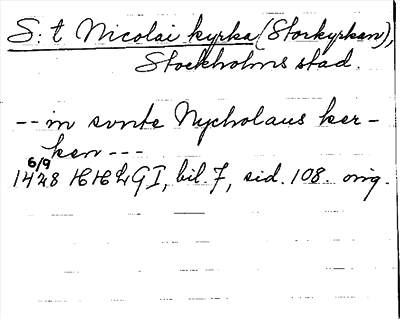 S:t Nicolai kyrka (Storkyrkan),
Stockholms stad.
-- in sunte Nycholaus ker-
ken ---
6/9
1428 HH LGI, bil. 7, sid. 108. orig.